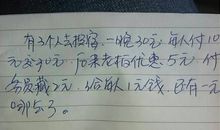 有3个人去投宿,一晚30元,每人付10
元交30元,后来老板优惠5元,
务员藏2元,给每人1元钱,还有一元
哪去了。